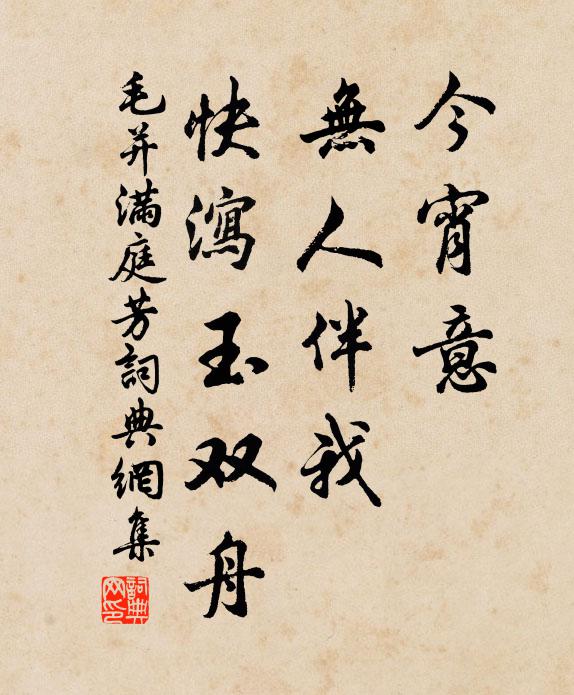 今宵意
無人伴我
快瀉玉双舟
毛并滿庭芳詞典網集
詞典網印